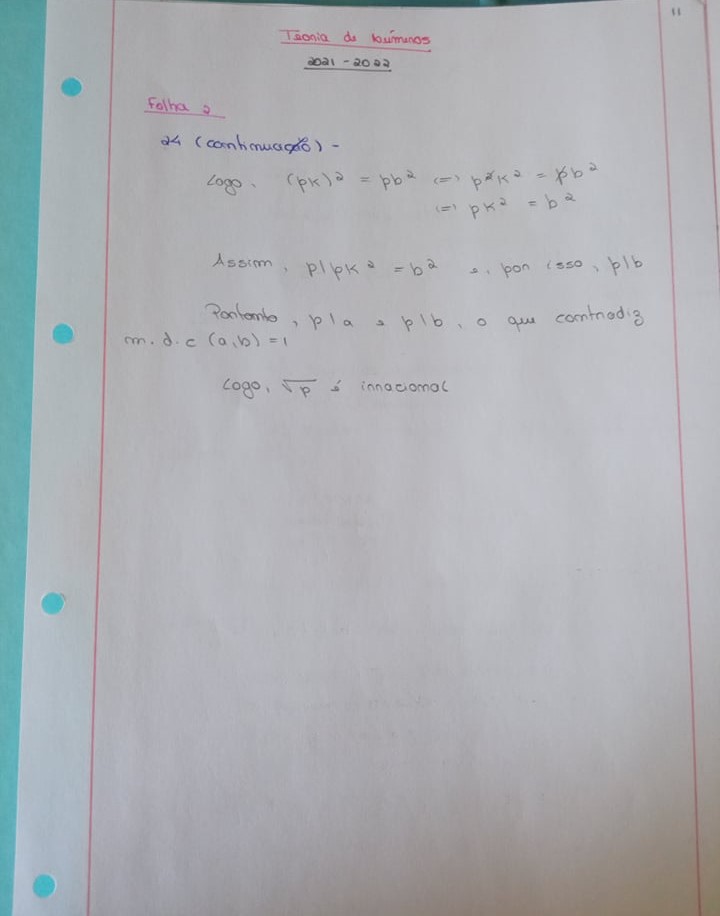 11
Teoria de Números
2021-2022
Folha 2
24 (continuação) -
Logo, (pk)² = pb² (=) p²k² = pb²
(=) pk² = b²
Assim, p|pk² = b² e, por isso, p|b
Portanto, p|a e p|b, o que contradiz
m.d.c (a,b) = 1
Logo, √p é irracional